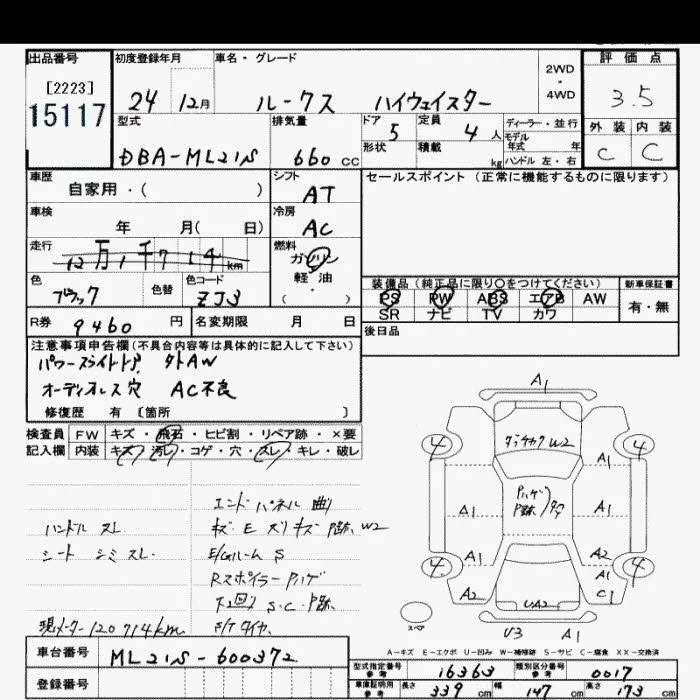 出品番号 初度登録年月 車名・グレード 2WD・4WD 評価点
[2223]
15117
24 12月 ルークス ハイウェイスター 3.5
型式 排気量 ドア 5 定員 4人 ディーラー・並行 外装 内装
モデル年式 年
DBA-ML21S 660 cc 形状 積載 kg ハンドル 左・右 C C
車歴 シフト セールスポイント(正常に機能するものに限ります)
自家用・( ) AT
車検 冷房
年 月( 日) AC
走行 燃料
12万1千714km ガソリン
色 色替 色コード 軽油 装備品(純正品に限り○をつけてください) 新車保証書
ブラック ZJ3 ・( ) PS PW ABS エアB AW 有・無
SR ナビ TV カワ
R券 9460円 名変期限 月 日 後日品
注意事項申告欄(不具合内容等は具体的に記入して下さい)
パワースライドドア 外AW
オーディオレス穴 AC不良
修復歴 有 〔箇所 〕
検査員 FW キズ・飛石・ヒビ割・リペア跡・×要
記入欄 内装 キズ・汚レ・コゲ・穴・スレ・キレ・破レ
エンドパネル曲
ハンドル スレ キズ E ズリキズ P跡、W2
シート シミ スレ E/Gルーム S
Rスポイラー Pハゲ
下回り S.C.P跡、
現メーター120714km S/Tタイヤ
A1
4 4
W2
A1
Pハゲ P跡
A1 A1
A1 A2
4 A1 4
A2 UA2 C1
U3 A1
スペア
A-キズ E-エクボ U-凹み W-補修跡 S-サビ C-腐食 XX-交換済
車台番号 ML21S-600372
型式指定番号 参考 16363 類別区分番号 参考 0017
登録番号
車庫証明用 参考 長さ 339cm 幅 147cm 高さ 173cm